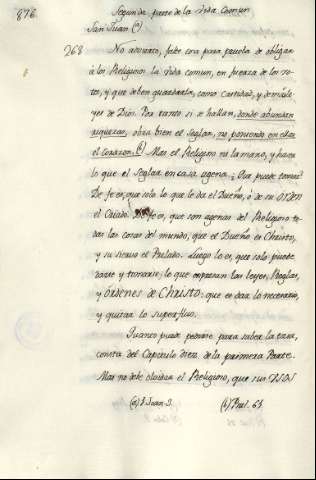 876.
Segunda parte de la Vida Comun
San Juan (a)
268 No advierto, falte otra para prueba de obligar
à los Religiosos la Vida comun, en fuerza de los vo-
tos, y que deben guardarla, como Castidad, y demàs le-
yes de Dios. Por tanto si se hallan, donde abundan
riquezas, obra bien el Seglar, no poniendo en ellas
el corazon. (b) Mas el Religioso ni la mano, y haga
lo que el Seglar en casa agena. ¿Que puede tomar?
De fe es, que solo lo que le da el Dueño, ò de su orden
el Criado. De fe es, que son agenas del Religioso to-
das las cosas del mundo, que el Dueño es Christo,
y su siervo el Prelado. Luego lo es, que solo puede
darse y tomarse, lo que expresan las leyes, Reglas,
y órdenes de Christo: que es dar lo necesario,
y quitar lo superfluo.
Quanto puede pedirse para saber la tasa,
consta del Capitulo diez de la primera Parte.
Mas no debe olvidar el Religioso, que sus
(a) I Juan 3.
(b) Psal. 61.